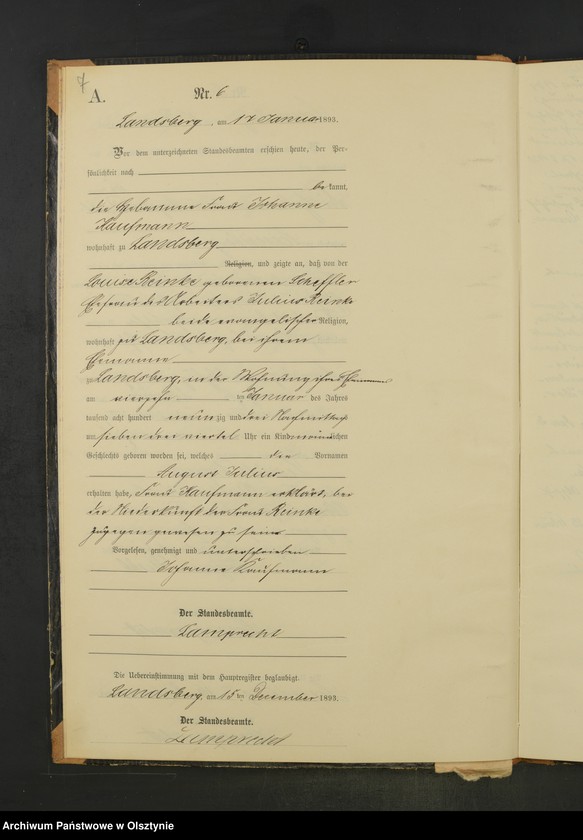 7
A.
Nr. 6
Landsberg, am 17 Januar 1893.
Vor dem unterzeichneten Standesbeamten erschien heute, der Per-
sönlichkeit nach
bekannt,
die Hebamme Frau Johanne
Kaufmann
wohnhaft zu Landsberg
Religion, und zeigte an, daß von der
Louise Reinke geborenen Scheffler
Ehefrau des Arbeiters Julius Reinke
beide evangelischer Religion,
wohnhaft zu Landsberg, bei ihrem
Ehemanne
zu Landsberg, in der Wohnung ihres Ehemannes
am vierzehn ten Januar des Jahres
tausend acht hundert neunzig und drei Nachmittags
um sieben drei viertel Uhr ein Kind männlichen
Geschlechts geboren worden sei, welches die Vornamen
August Julius
erhalten habe, Frau Kaufmann erklärt, bei
der Niederkunft der Frau Reinke
zugegen gewesen zu sein
Vorgelesen, genehmigt und unterschrieben
Johanne Kaufmann
Der Standesbeamte.
Lamprecht
Die Uebereinstimmung mit dem Hauptregister beglaubigt.
Landsberg, am 15 ten December 1893.
Der Standesbeamte.
Lamprecht
Archiwum Państwowe w Olsztynie